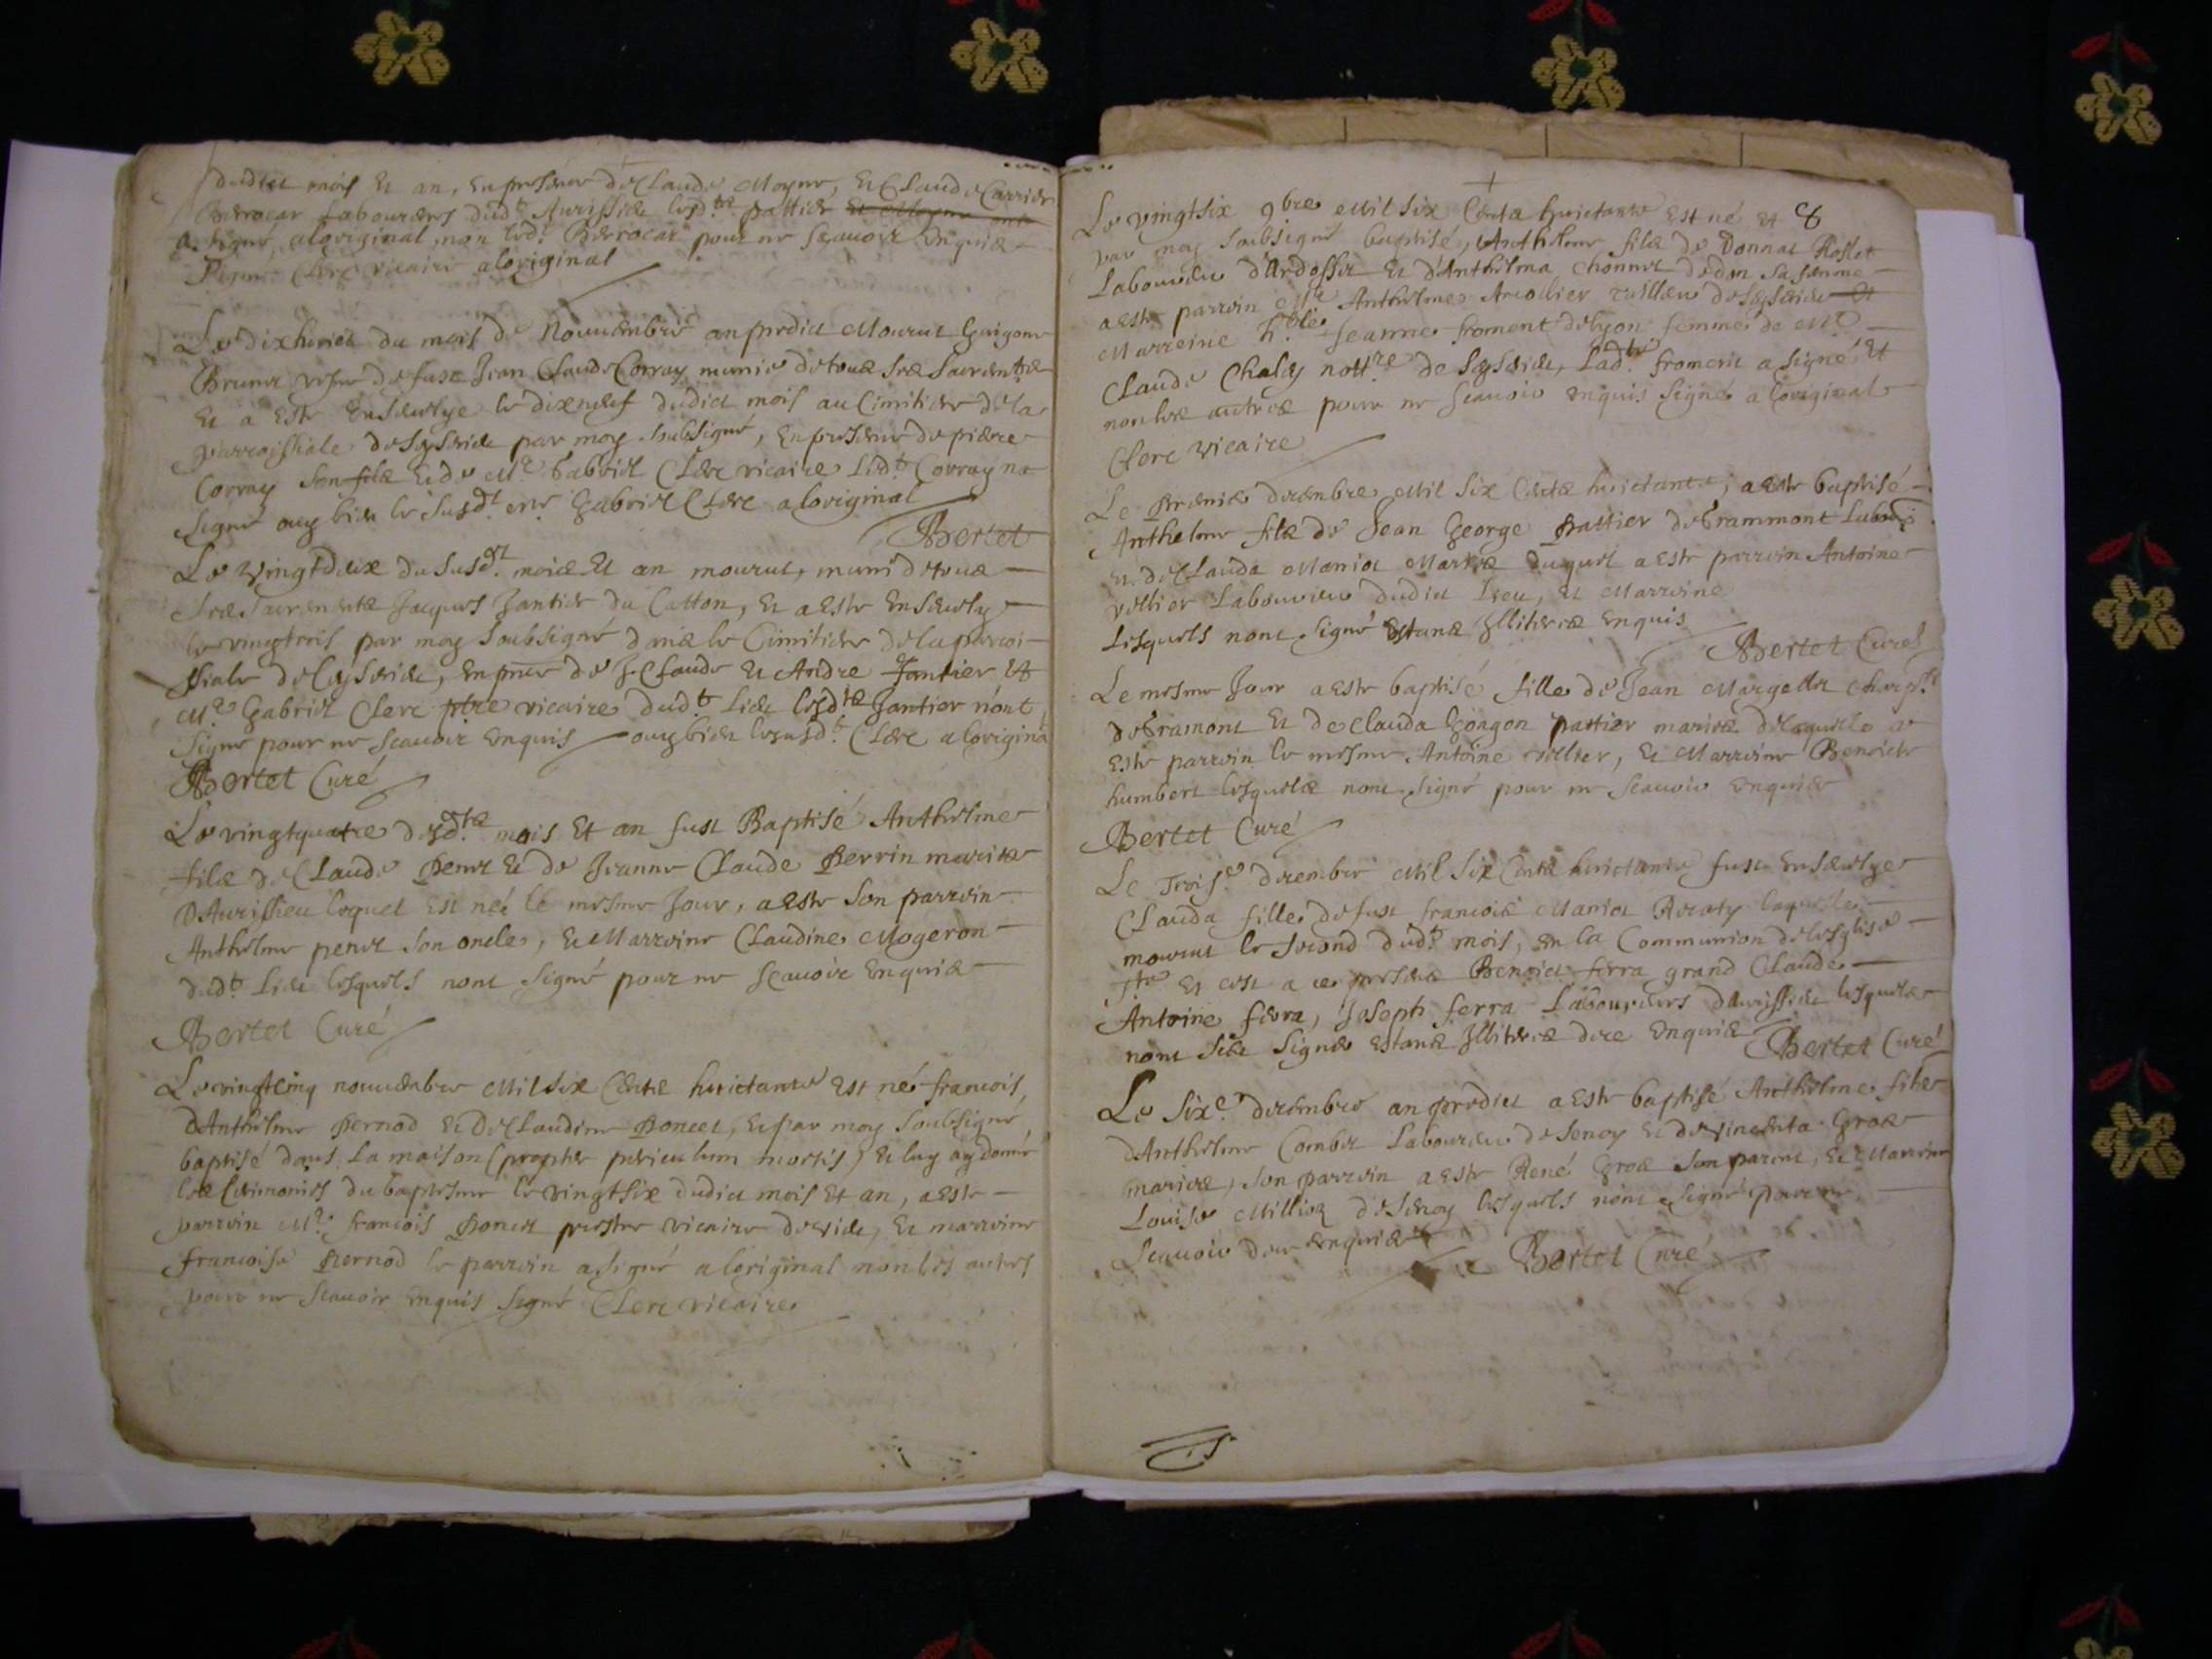 dudict mois Et an, En presence de Claude Moyne, Et Claude Carrier
Berrocar Laboureurs dud.t Aurissieu lesd.ts pattier Et Moyne ont
a signé aloriginal, non led.t Berrocar pour ne scauoir Enquis
Signé Clerc vicaire aloriginal
Le dixhuict du mois de Nouuembre an predict Mourut Guigone
Brunet vefue de fust Jean Claude Corray munie de tous ses sacrements
Et a Esté Enseuelye le dixneuf dudict mois au Cimitiere dela
parroissiale de Ceyserieu par moy soubsigné, En presence de piere
Corray son fils Et de M.e Gabriel Clerc vicaire led.t Corray na
signé ouy bien le susd.t M.e Gabriel Clerc aloriginal
Bertet
Le vingtdeux du susd.t mois Et an mourut, muni de tous
ses sacrements Jacques Jantier du Catton, Et a Esté Enseuely
le vingttrois par moy soubsigné dans le Cimitiere dela parroi-
ssiale de Ceyserieu, En pnce de J. Claude Et Andre Jantier Et
M.e Gabriel Clerc pbre vicaire dud.t Lieu lesd.ts Jantier n'ont
signé pour ne scauoir Enquis ouy bien le susd.t Clerc aloriginal
Bertet Curé
Le vingtquatre desd.ts mois Et an fust Baptisé Anthelme
fils de Claude Penet Et de Jeanne Claude Perrin mariés
D'Aurissieu lequel Est né le mesme Jour, a Esté son parrein
Anthelme penet son oncle, Et Marreine Claudine Mogeron
dud.t Lieu lesquels n'ont signé pour ne scauoir Enquis
Bertet Curé
Le vingtcinq nouuembre Mil six Cents huictante Est né francois,
D'Anthelme Pernod Et de Claudine Poncet, Et par moy soubsigné,
baptisé dans la maison (propter periculum mortis) Et luy ay donné
les Ceremonies du baptesme le vingtsix dudict mois Et an, a Esté
parrein M.e francois Poncet prestre vicaire de vieu, Et marreine
francoise Pernod le parrein a signé aloriginal non les autres
pour ne scauoir Enquis signé Clerc vicaire
8
Le vingtsix 9bre Mil six Cents huictante Est né Et
par moy soubsigné baptisé, Anthelme fils de Donnat Rosset
Laboureur d'Ardosset Et d'Anthelma Chonnet de dm sa femme
a Esté parrein M.e Anthelme Arcollier tailleur de Ceyserieu Et
Marreine h.ble Jeanne froment de lyon femme de M.e
Claude Chaley nott.re de Ceyserieu, Lad.te froment a signé Et
non les autres pour ne scauoir Enquis signé aloriginal
Clerc vicaire
Le Premier decembre Mil six Cents huictante, a Esté baptisé
Anthelme fils de Jean George Pattier de Grammont Labour.
Et de Clauda Maniet Mariés duquel a Esté parrein Antoine
vellier Laboureur dudict Lieu, Et Marreine
Lesquels n'ont signé Estans Illiteres Enquis
Bertet Curé
Le mesme Jour a Esté baptisé fille de Jean Margellet charp.r
de Gramont Et de Clauda Gongon pattier mariés delaquelle a
Esté parrein le mesme Antoine vellier, Et Marreine Benoiste
humbert lesquels n'ont signé pour ne scauoir Enquis
Bertet Curé
Le Trois.e decembre Mil six Cents huictante fust Enseuelye
Clauda fille de fust francois Maniet Recaty laquelle
mourut le second dud.t mois, En la Communion delesglise
s.te Et cest a ce presens Benoict ferra grand Claude
Antoine ferra, Joseph ferra Laboureurs d'Aurissieu lesquels
n'ont sceu signer Estans Illiteres dece Enquis Bertet Curé
Le six.e decembre an predict a Esté baptisé Anthelme fils
d'Anthelme Combet Laboureur de senoy Et de vincenta Gros
mariés, son parrein a Esté René Gros son parent, Et Marreine
Louise Million de senoy lesquels n'ont signé pour ne
scauoir dece Enquis Bertet Curé